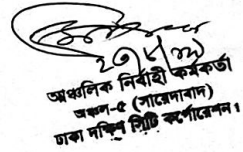 আঞ্চলিক নির্বাহী কর্মকর্তা
অঞ্চল-৫ (সায়েদাবাদ)
ঢাকা দক্ষিণ সিটি কর্পোরেশন।